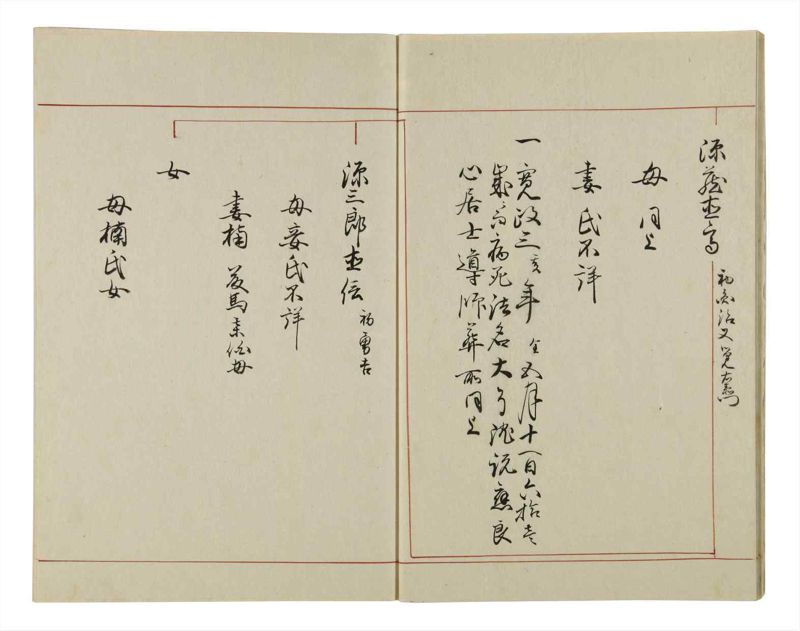 源蔵直高 初
母 同上
妻 氏不詳
一 寛政三亥年 五月十一日六拾壱
歳ニ而病死法名大了院説應良
心居士導師葬所同上
源三郎直伝 初勇吉
母妾氏不詳
妻楠 母
女
母楠氏女